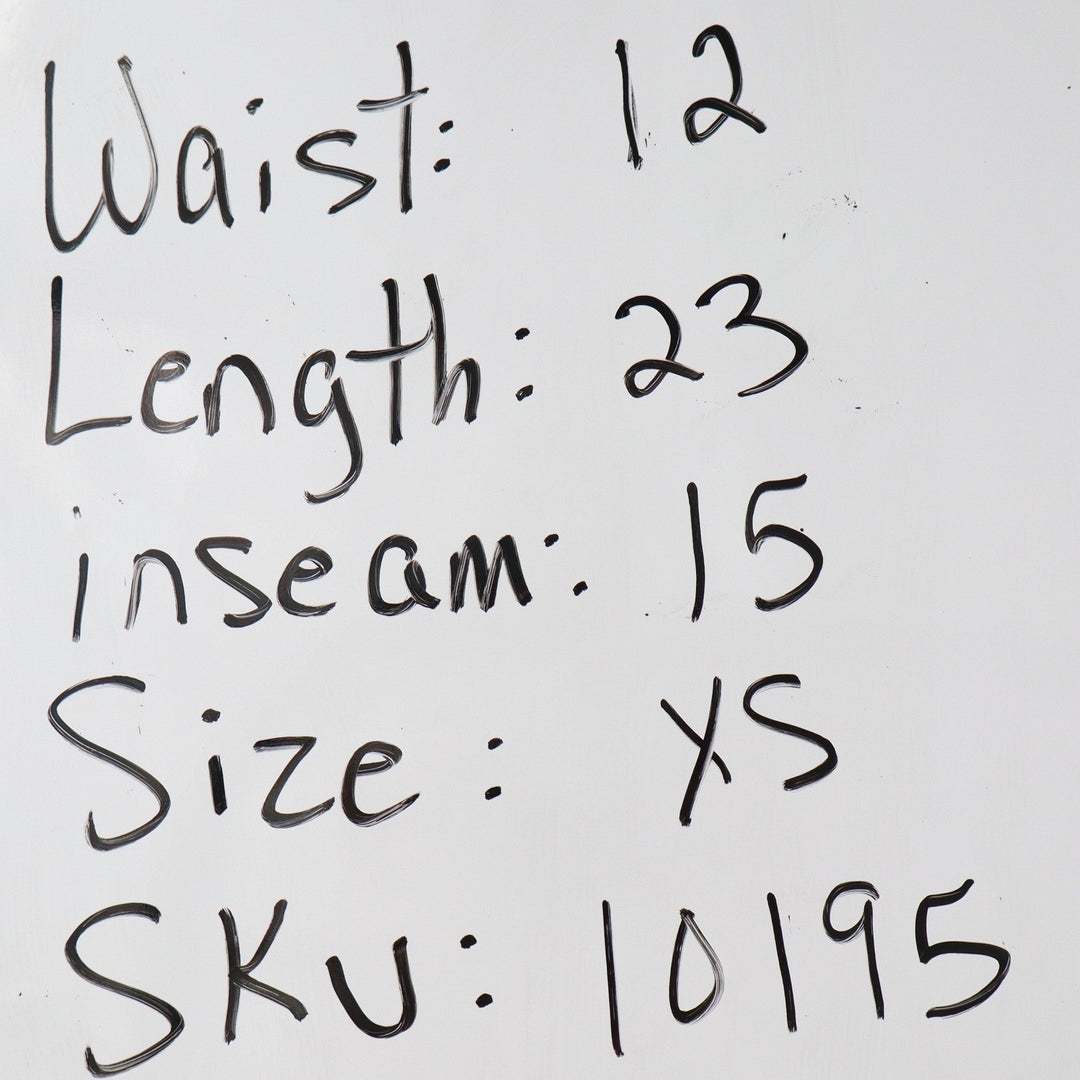 Waist: 12
Length: 23
inseam: 15
Size: XS
SKU: 10195